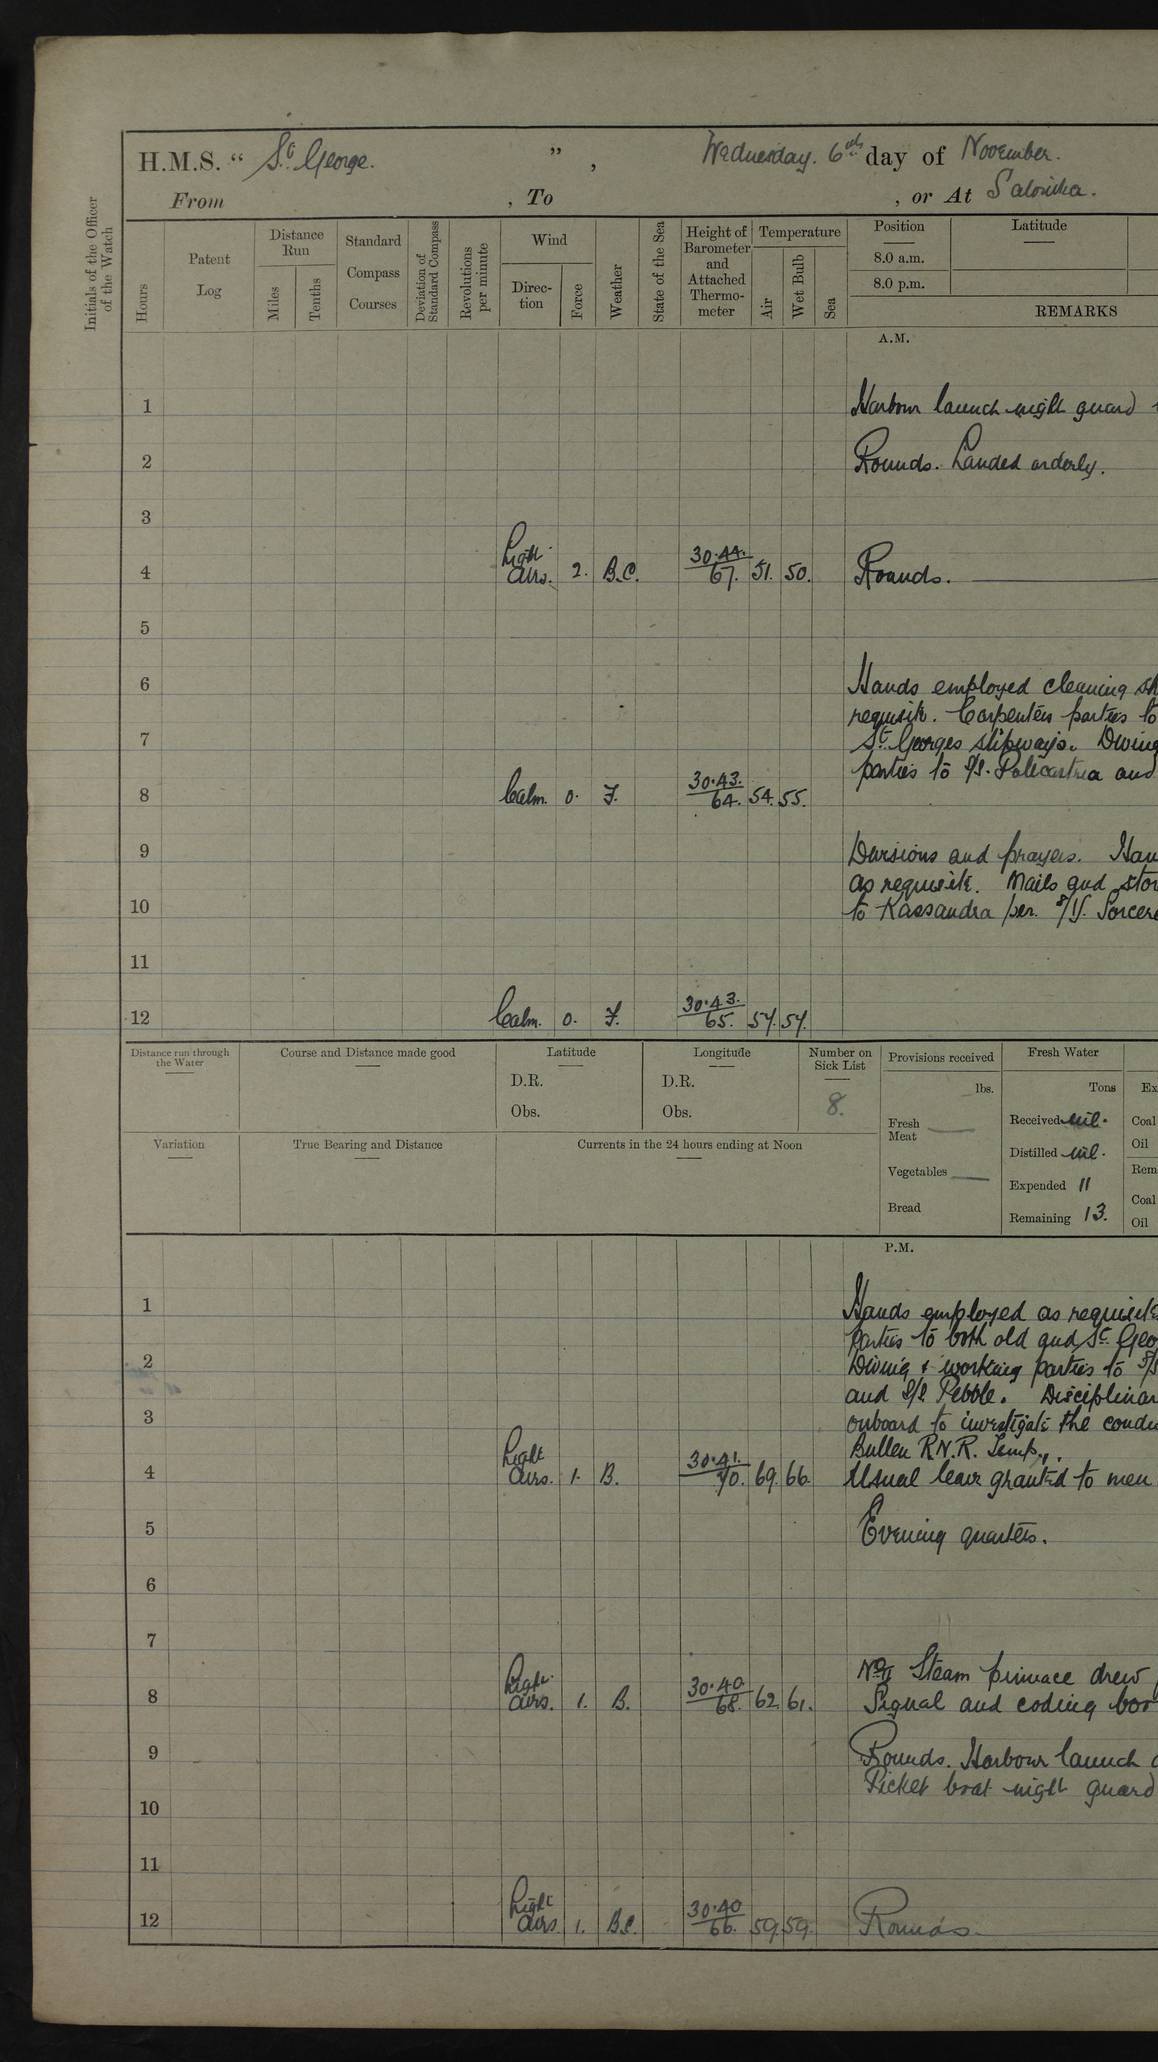 H.M.S. “ St George. ” , Wednesday. 6th day of November.
From , To , or At Salonika.
Initials of the Officer of the Watch
Hours
Patent Log
Distance Run
Miles
Tenths
Standard Compass Courses
Deviation of Standard Compass
Revolutions per minute
Wind
Direc-tion
Force
Weather
State of the Sea
Height of Barometer and Attached Thermo-meter
Temperature
Air
Wet Bulb
Sea
Position
8.0 a.m.
8.0 p.m.
Latitude
REMARKS
A.M.
1 Harbour launch night guard
2 Rounds. Landed orderly.
3
4 Light Airs. 2. B.C. 30.44. 67. 51. 50. Rounds.
5
6 Hands employed cleaning sh
requisite. Carpenters parties to
7 St Georges slipways. Diving
parties to S/S. Policastra and
8 Calm. 0. F. 30.43. 64. 54. 55.
9 Divisions and prayers. Han
as requisite. Mails and stor
10 to Kassandra per. S/S. Sorcere
11
12 Calm. 0. F. 30.43. 65. 57. 57.
Distance run through the Water
Course and Distance made good
Latitude
D.R.
Obs.
Longitude
D.R.
Obs.
Number on Sick List
8.
Provisions received
lbs.
Fresh Meat
Vegetables
Bread
Fresh Water
Tons
Received nil.
Distilled nil.
Expended 11
Remaining 13.
Ex
Coal
Oil
Rem
Coal
Oil
Variation
True Bearing and Distance
Currents in the 24 hours ending at Noon
P.M.
1 Hands employed as requisite
Parties to both old and St Geo
2 Diving & working parties to S/S
and S/S Pebble. Disciplinar
3 onboard to investigate the condu
Bullen R.N.R. Temp.,.
4 Light Airs. 1. B. 30.41. 70. 69. 66. Usual leave granted to men
5 Evening quarters.
6
7
No 1 Steam pinnace drew
8 Light Airs. 1. B. 30.40 68. 62 61. Signal and coding boo
9 Rounds. Harbour launch
Picket boat night guard
10
11
12 Light Airs 1. B.C. 30.40 66. 59. 59. Rounds.